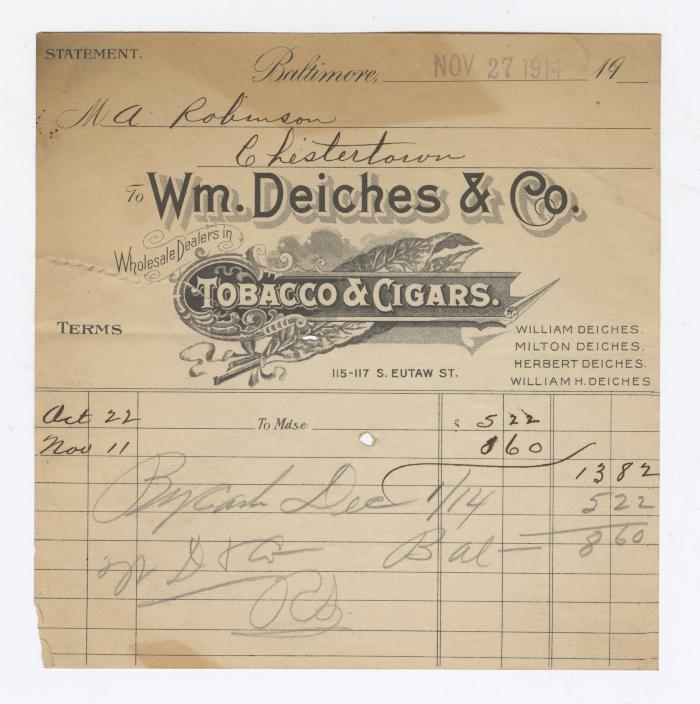 STATEMENT.
Baltimore, NOV 27 1914 19
M A Robinson
Chestertown
To Wm. Deiches & Co.
Wholesale Dealers in
TOBACCO & CIGARS.
TERMS
115-117 S. EUTAW ST.
WILLIAM DEICHES.
MILTON DEICHES.
HERBERT DEICHES.
WILLIAM H. DEICHES
Oct 22 To Mdse $ 5 22
Nov 11 8 60
13 82
By Cash Dec 1/14 5 22
Bal — 8 60
D & Co